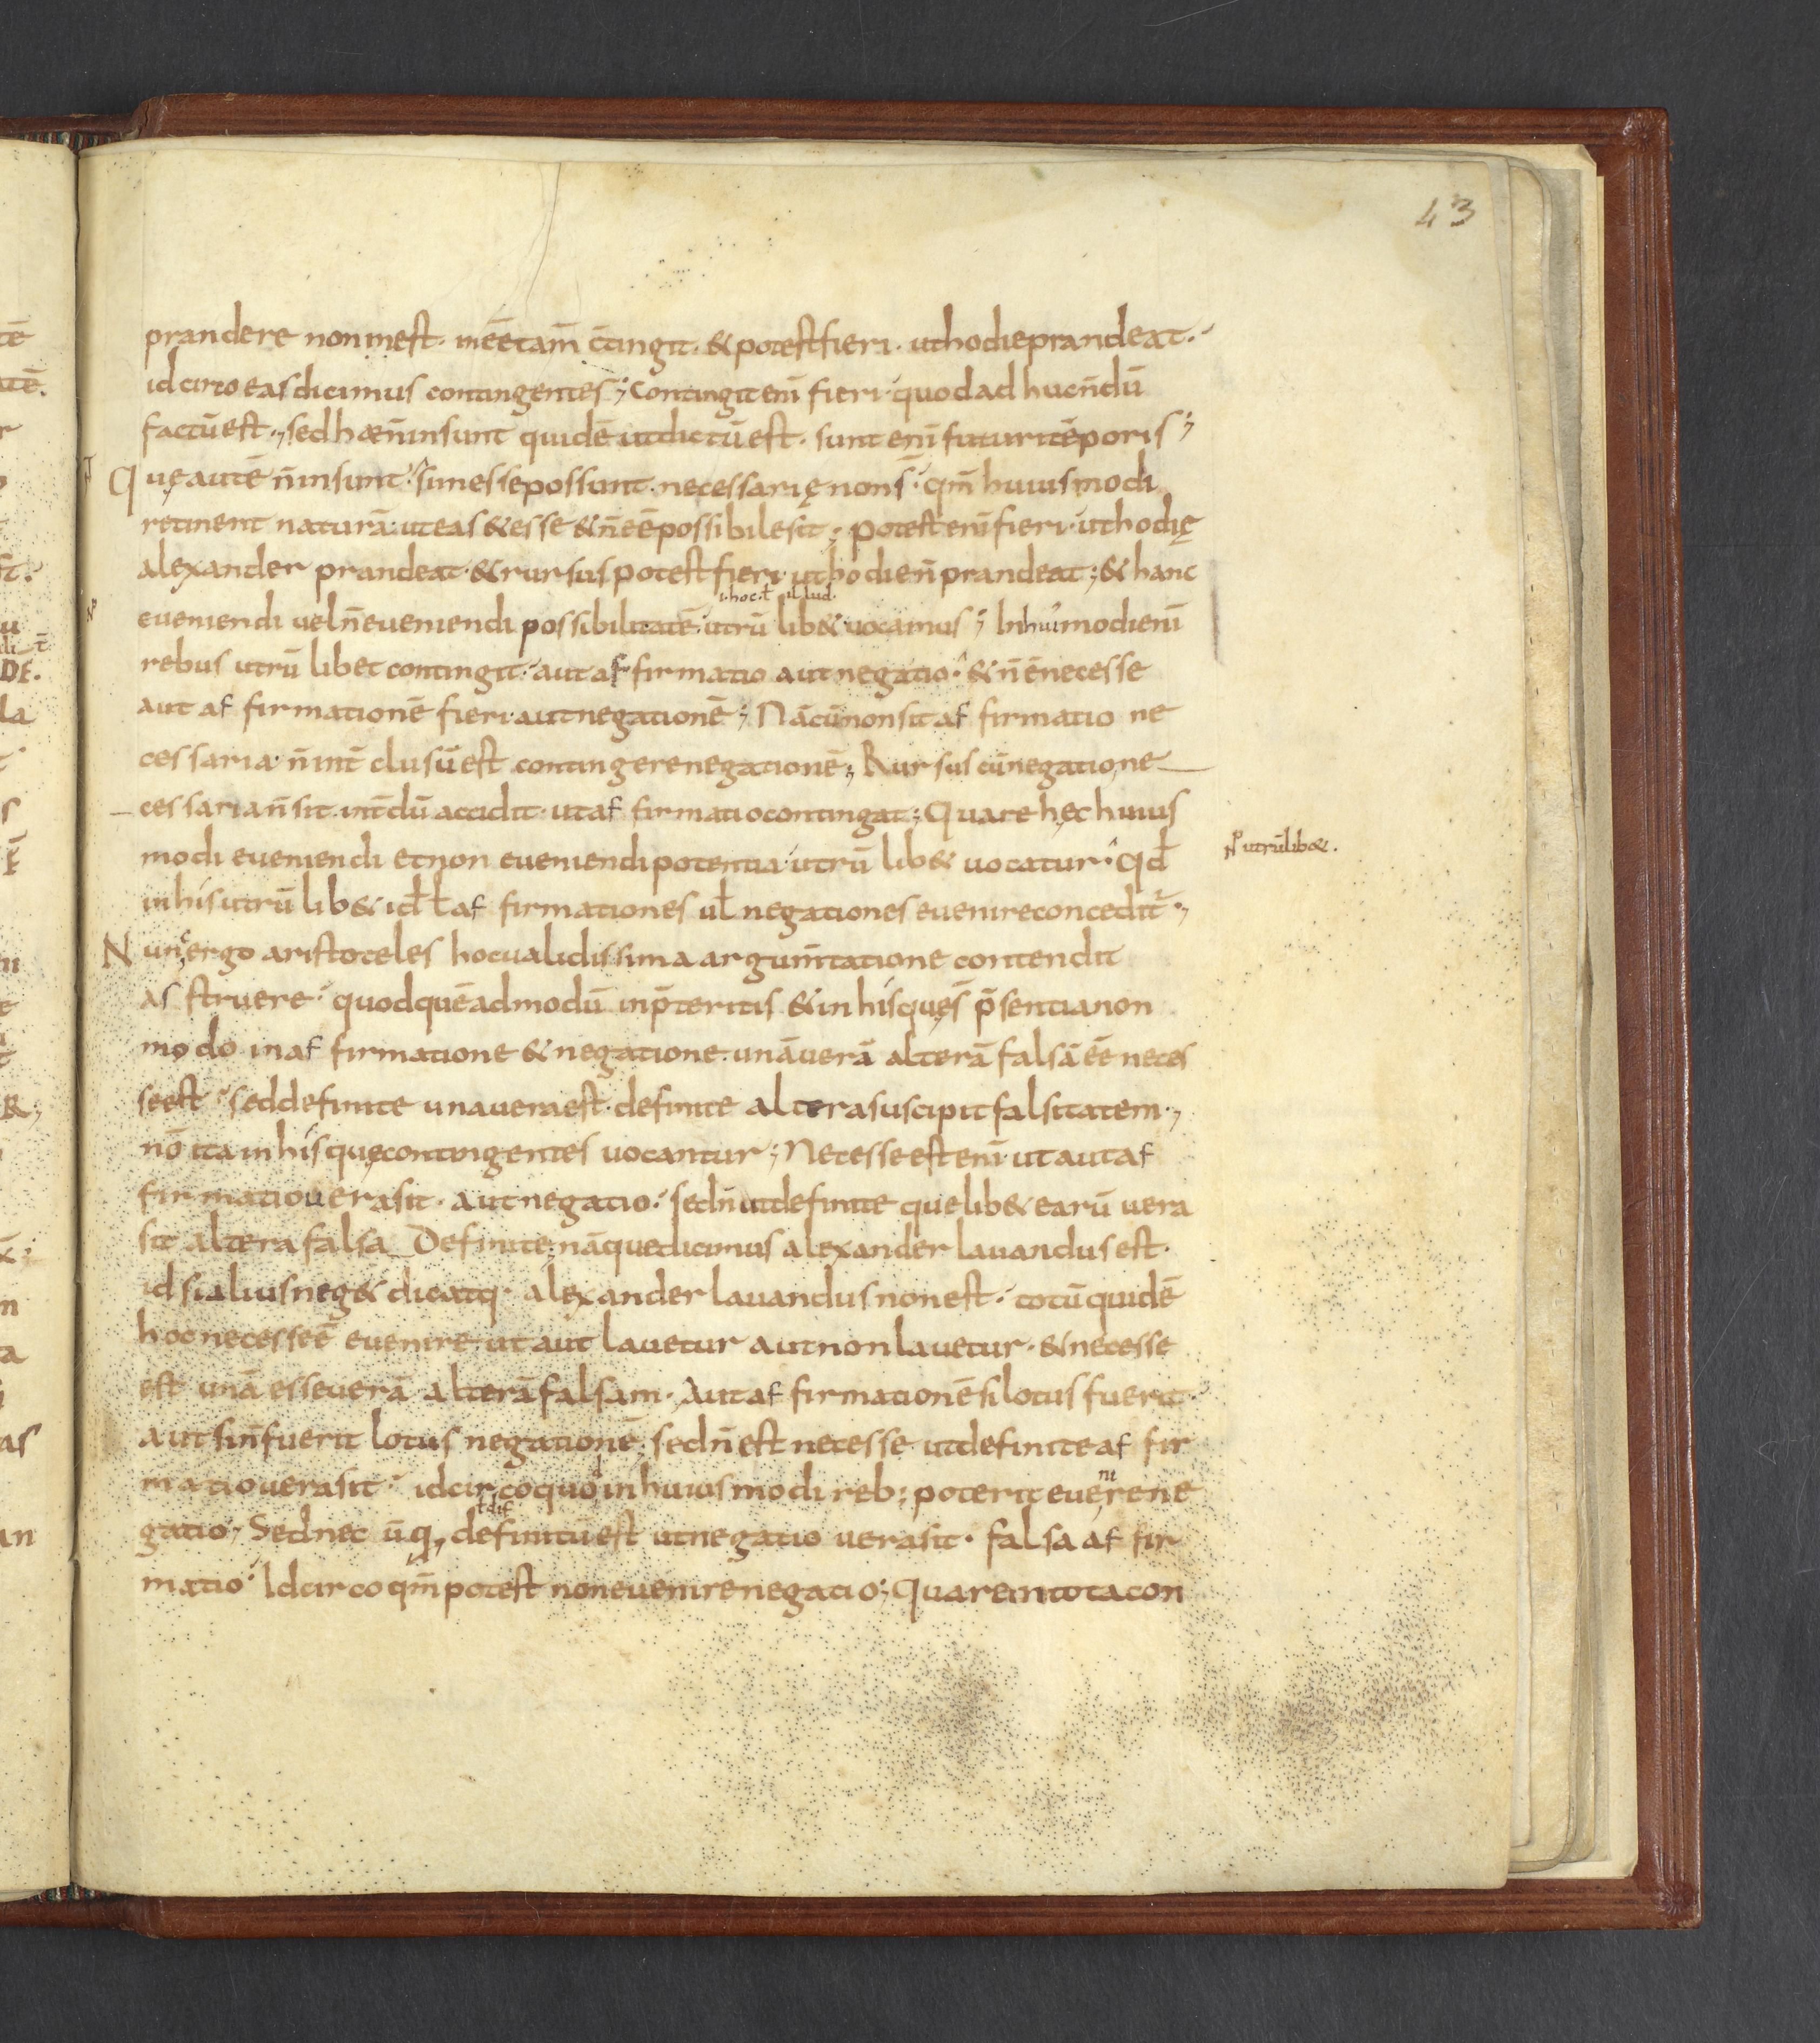 43
prandere non inest. inēē tam̄ c̄tingit. & potest fieri. ut hodie prandeat.
idcirco eas dicimus contingentes; Contingit enī fieri quod adhuc n̄dū
factū est., sed hae n̄ insunt quidē ut dictū est. sunt enī futuri tēporis;
Quę autē n̄ insunt. si inesse possunt. necessarię non s̄. qm̄ huiusmodi
retinent naturā. ut eas & esse & n̄ eē possibile sit; potest enī fieri. ut hodię
alexander prandeat. & rursus potest fieri. ut hodie n̄ prandeat; & hanc
.i. hoc. ł illud.
eueniendi uel n̄ eueniendi possibilitatē. utrū lib& uocamus; In hui'modi enī
rebus utrū libet contingit. aut affirmatio aut negatio. & n̄ ē necesse
aut affirmationē fieri. aut negationē; Nā cū non sit affirmatio ne
cessaria. n̄ int̄clusū est contingere negationē; Rursus cū negatio ne
cessaria n̄ sit. int̄dū accidit. ut affirmatio contingat; Quare hęc huius
modi eueniendi et non eueniendi potentia. utrū lib& uocatur. Qd̄
N̄ utrūlib&.
in his utrū lib& id ł affirmationes uł negationes euenire conceditr.,
Nunc ergo aristoteles hoc ualidissima argum̄tatione contendit
astruere. quod quēadmodū in p̄teritis & in his quę s̄ p̄sentia non
modo in affirmatione & negatione. unā uerā alterā falsā eē neces
se est. sed definite una uera est. definite altera suscipit falsitatem.,
nō ita in his quę contingentes uocantur; Necesse est enī ut aut af
firmatio uera sit. aut negatio. sed n̄ ut definite quelib& earū uera
sit altera falsa_ Definite; nāque dicimus alexander lauandus est.
id si alius neg& dicatq. alexander lauandus non est. totū quidē
hoc necesse ē euenire. ut aut lauetur aut non lauetur. & necesse
est unā esse uerā alterā falsam. Aut affirmationē si lotus fuerit
aut si n̄ fuerit lotus negationē; sed n̄ est necesse. ut definite affir
matio uera sit. idcirco quod in huiusmodi reb; poterit euenire ne
gatio., Sed nec ūq, definitū est ut negatio uera sit. falsa affir
matio. Idcirco qm̄ potest non euenire negatio; Quare in tota con